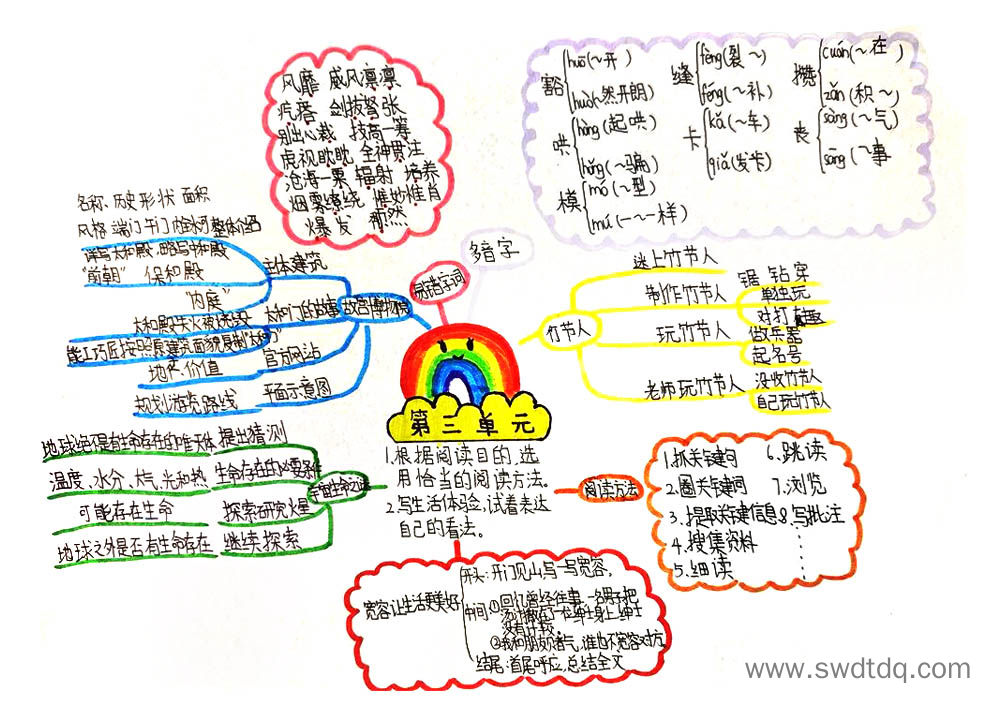 风靡 威风凛凛
疙瘩 剑拔弩张
别出心裁 技高一筹
虎视眈眈 全神贯注
沧海一粟 辐射 培养
烟雾缭绕 惟妙惟肖
爆发
易错字词
多音字
豁
huō(~开)
huò(~然开朗)
哄
hòng(起哄)
hǒng(~骗)
模
mó(~型)
mú(一~一样)
缝
fèng(裂~)
féng(~补)
卡
kǎ(~车)
qiǎ(发卡)
攒
cuán(~在)
zǎn(积~)
丧
sàng(~气)
sāng(~事
名称、历史 形状 面积
整体介绍
详写太和殿,略写中和殿
"前朝" 保和殿
"内庭"
主体建筑
太和门的故事
故宫博物院
太和殿失火被烧毁
官方网站
地点、价值
平面示意图
规划游览路线
竹节人
迷上竹节人
制作竹节人
锯 钻 穿
玩竹节人
单独玩
对打
做兵器
起名号
老师玩竹节人
没收竹节人
自己玩竹节人
第三单元
1.根据阅读目的,选
用恰当的阅读方法。
2.写生活体验,试着表达
自己的看法。
地球绝不是有生命存在的唯一天体
提出猜测
温度、水分、大气、光和热
生命存在的必要条件
可能存在生命
探索研究火星
地球之外是否有生命存在
继续探索
宇宙生命之谜
阅读方法
1.抓关键句
2.圈关键词
3.提取关键信息
4.搜集资料
5.细读
6.跳读
7.浏览
8.写批注
宽容让生活更美好
开头:开门见山,写一写宽容,
中间:①回忆曾经往事,一名男子把
汤洒在了一位绅士身上,绅士
没有计较。
结尾:首尾呼应,总结全文
www.swdtdq.com